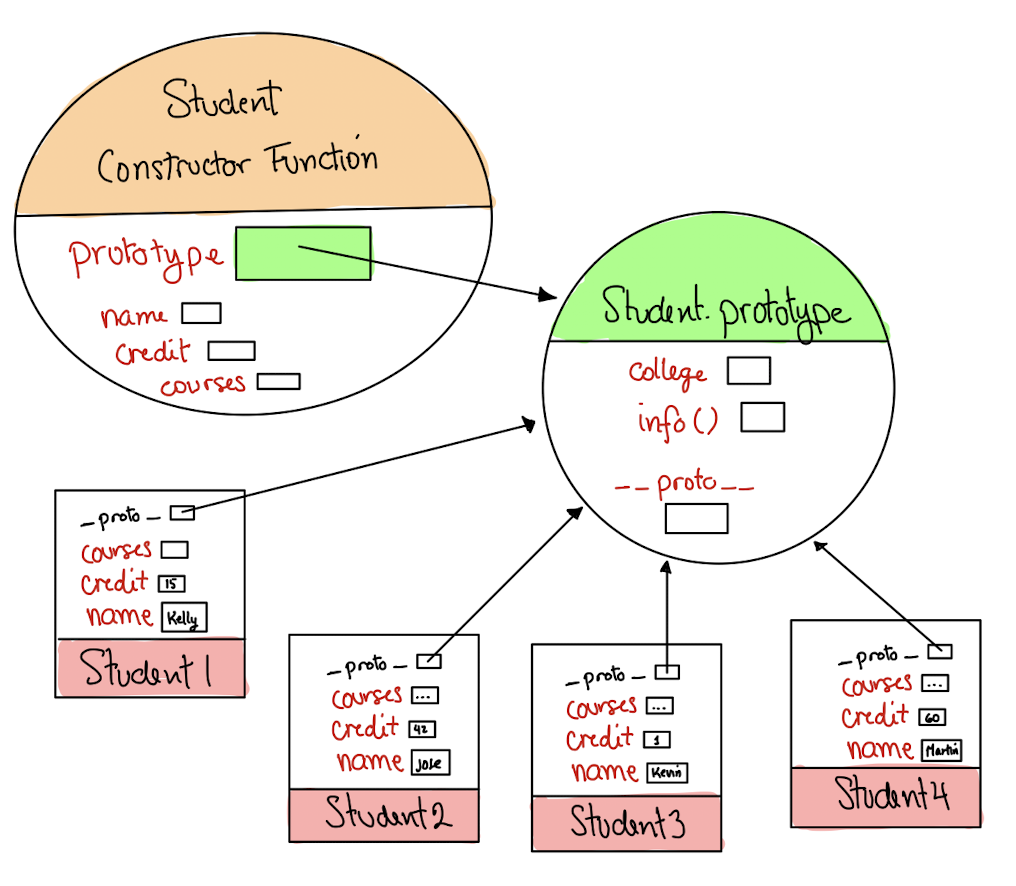 Student
Constructor Function
prototype
name
credit
courses
Student.prototype
college
info()
__proto__
_proto_
courses
credit 15
name Kelly
Student1
_proto_
courses ...
credit 42
name Jose
Student2
_proto_
courses ...
credit 1
name Kevin
Student3
_proto_
courses ...
credit 60
name Martin
Student4